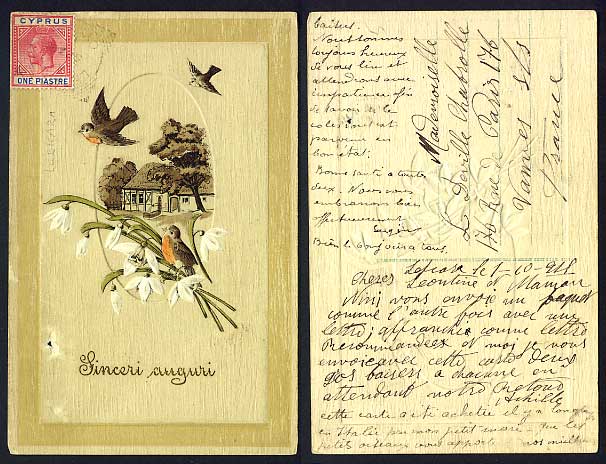 CYPRUS
ONE PIASTRE
Sinceri auguri
baisers.
Nous sommes
toujours heureux
de vous lire et
attendons avec
impatience afin
de savoir si le
colis est
parvenu en
bon état.
Bonne santé à toutes
deux. Nous vous
embrassons bien
affectueusement
Eugénie
Bien le bonjour à tous.
Mademoiselle
L. Deville Chabrolle
176 Rue de Paris 176
Vanves s/s
France
Lefcara le 1-10-921
Chères Léontine et Maman
Nini vous envoie un paquet
comme l'autre fois avec une
lettre; affranchie comme lettre
Recommandées et moi je vous
envoie avec cette carte deux
gos baisers a chacune en
attendant notre Retour
Achille
cette carte a été achetée il y a longtemps
en Italie par mon petit que les
petits oiseaux vous apporte nos meilleurs